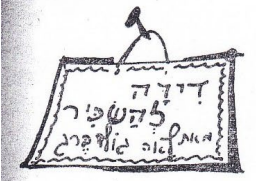 דִירָה
לְהַשְׂכִּיר
מאת לאה גולדברג